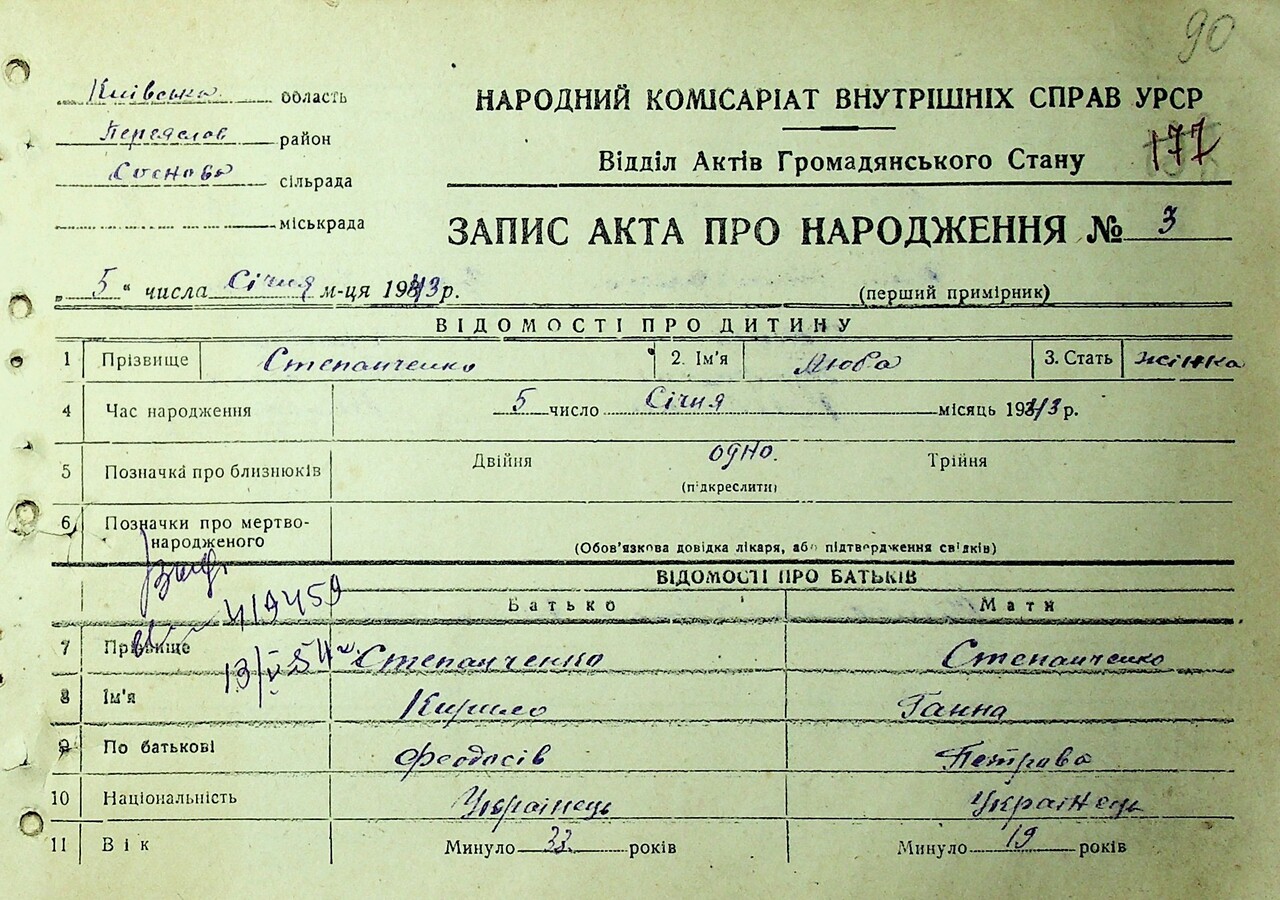 90
Київська область
Переяслов район
Соснова сільрада
міськрада
НАРОДНИЙ КОМІСАРІАТ ВНУТРІШНІХ СПРАВ УРСР
Відділ Актів Громадянського Стану
177
ЗАПИС АКТА ПРО НАРОДЖЕННЯ № 3
„5“ числа Січня м-ця 1943р.
(перший примірник)
ВІДОМОСТІ ПРО ДИТИНУ
1 Прізвище Степанченко 2. Ім'я Люба 3. Стать жінка
4 Час народження 5 число Січня місяць 1943р.
5 Позначка про близнюків Двійня одно. Трійня
(підкреслити)
6 Позначки про мертво-
народженого
(Обов'язкова довідка лікаря, або підтвердження свідків)
ВІДОМОСТІ ПРО БАТЬКІВ
419459
13/V 54
Батько Мати
7 Прізвище Степанченко Степанченко
8 Ім'я Кирило Ганна
9 По батькові Феодосів Петрова
10 Національність Українець Українець
11 Вік Минуло 33 років Минуло 19 років